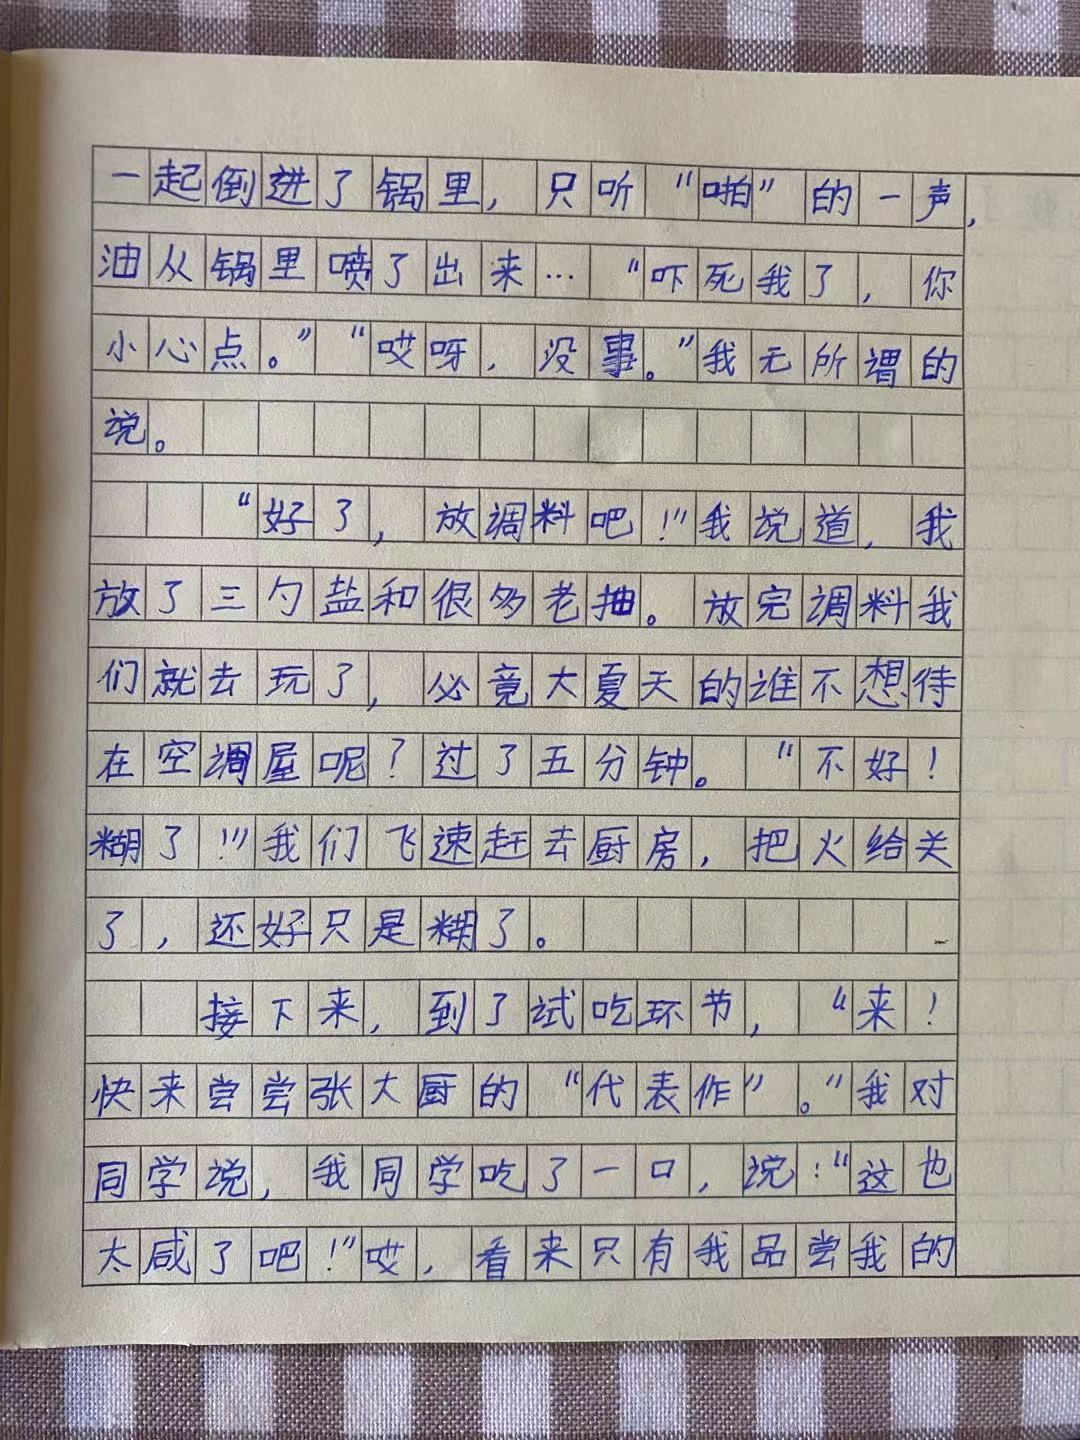 一起倒进了锅里，只听“啪”的一声，
油从锅里喷了出来…“吓死我了，你
小心点。”“哎呀，没事。”我无所谓的
说。
“好了，放调料吧！”我说道，我
放了三勺盐和很多老抽。放完调料我
们就去玩了，必竟大夏天的谁不想待
在空调屋呢？过了五分钟。“不好！
糊了！”我们飞速赶去厨房，把火给关
了，还好只是糊了。
接下来，到了试吃环节，“来！
快来尝尝张大厨的“代表作”。”我对
同学说，我同学吃了一口，说：“这也
太咸了吧！”哎，看来只有我品尝我的